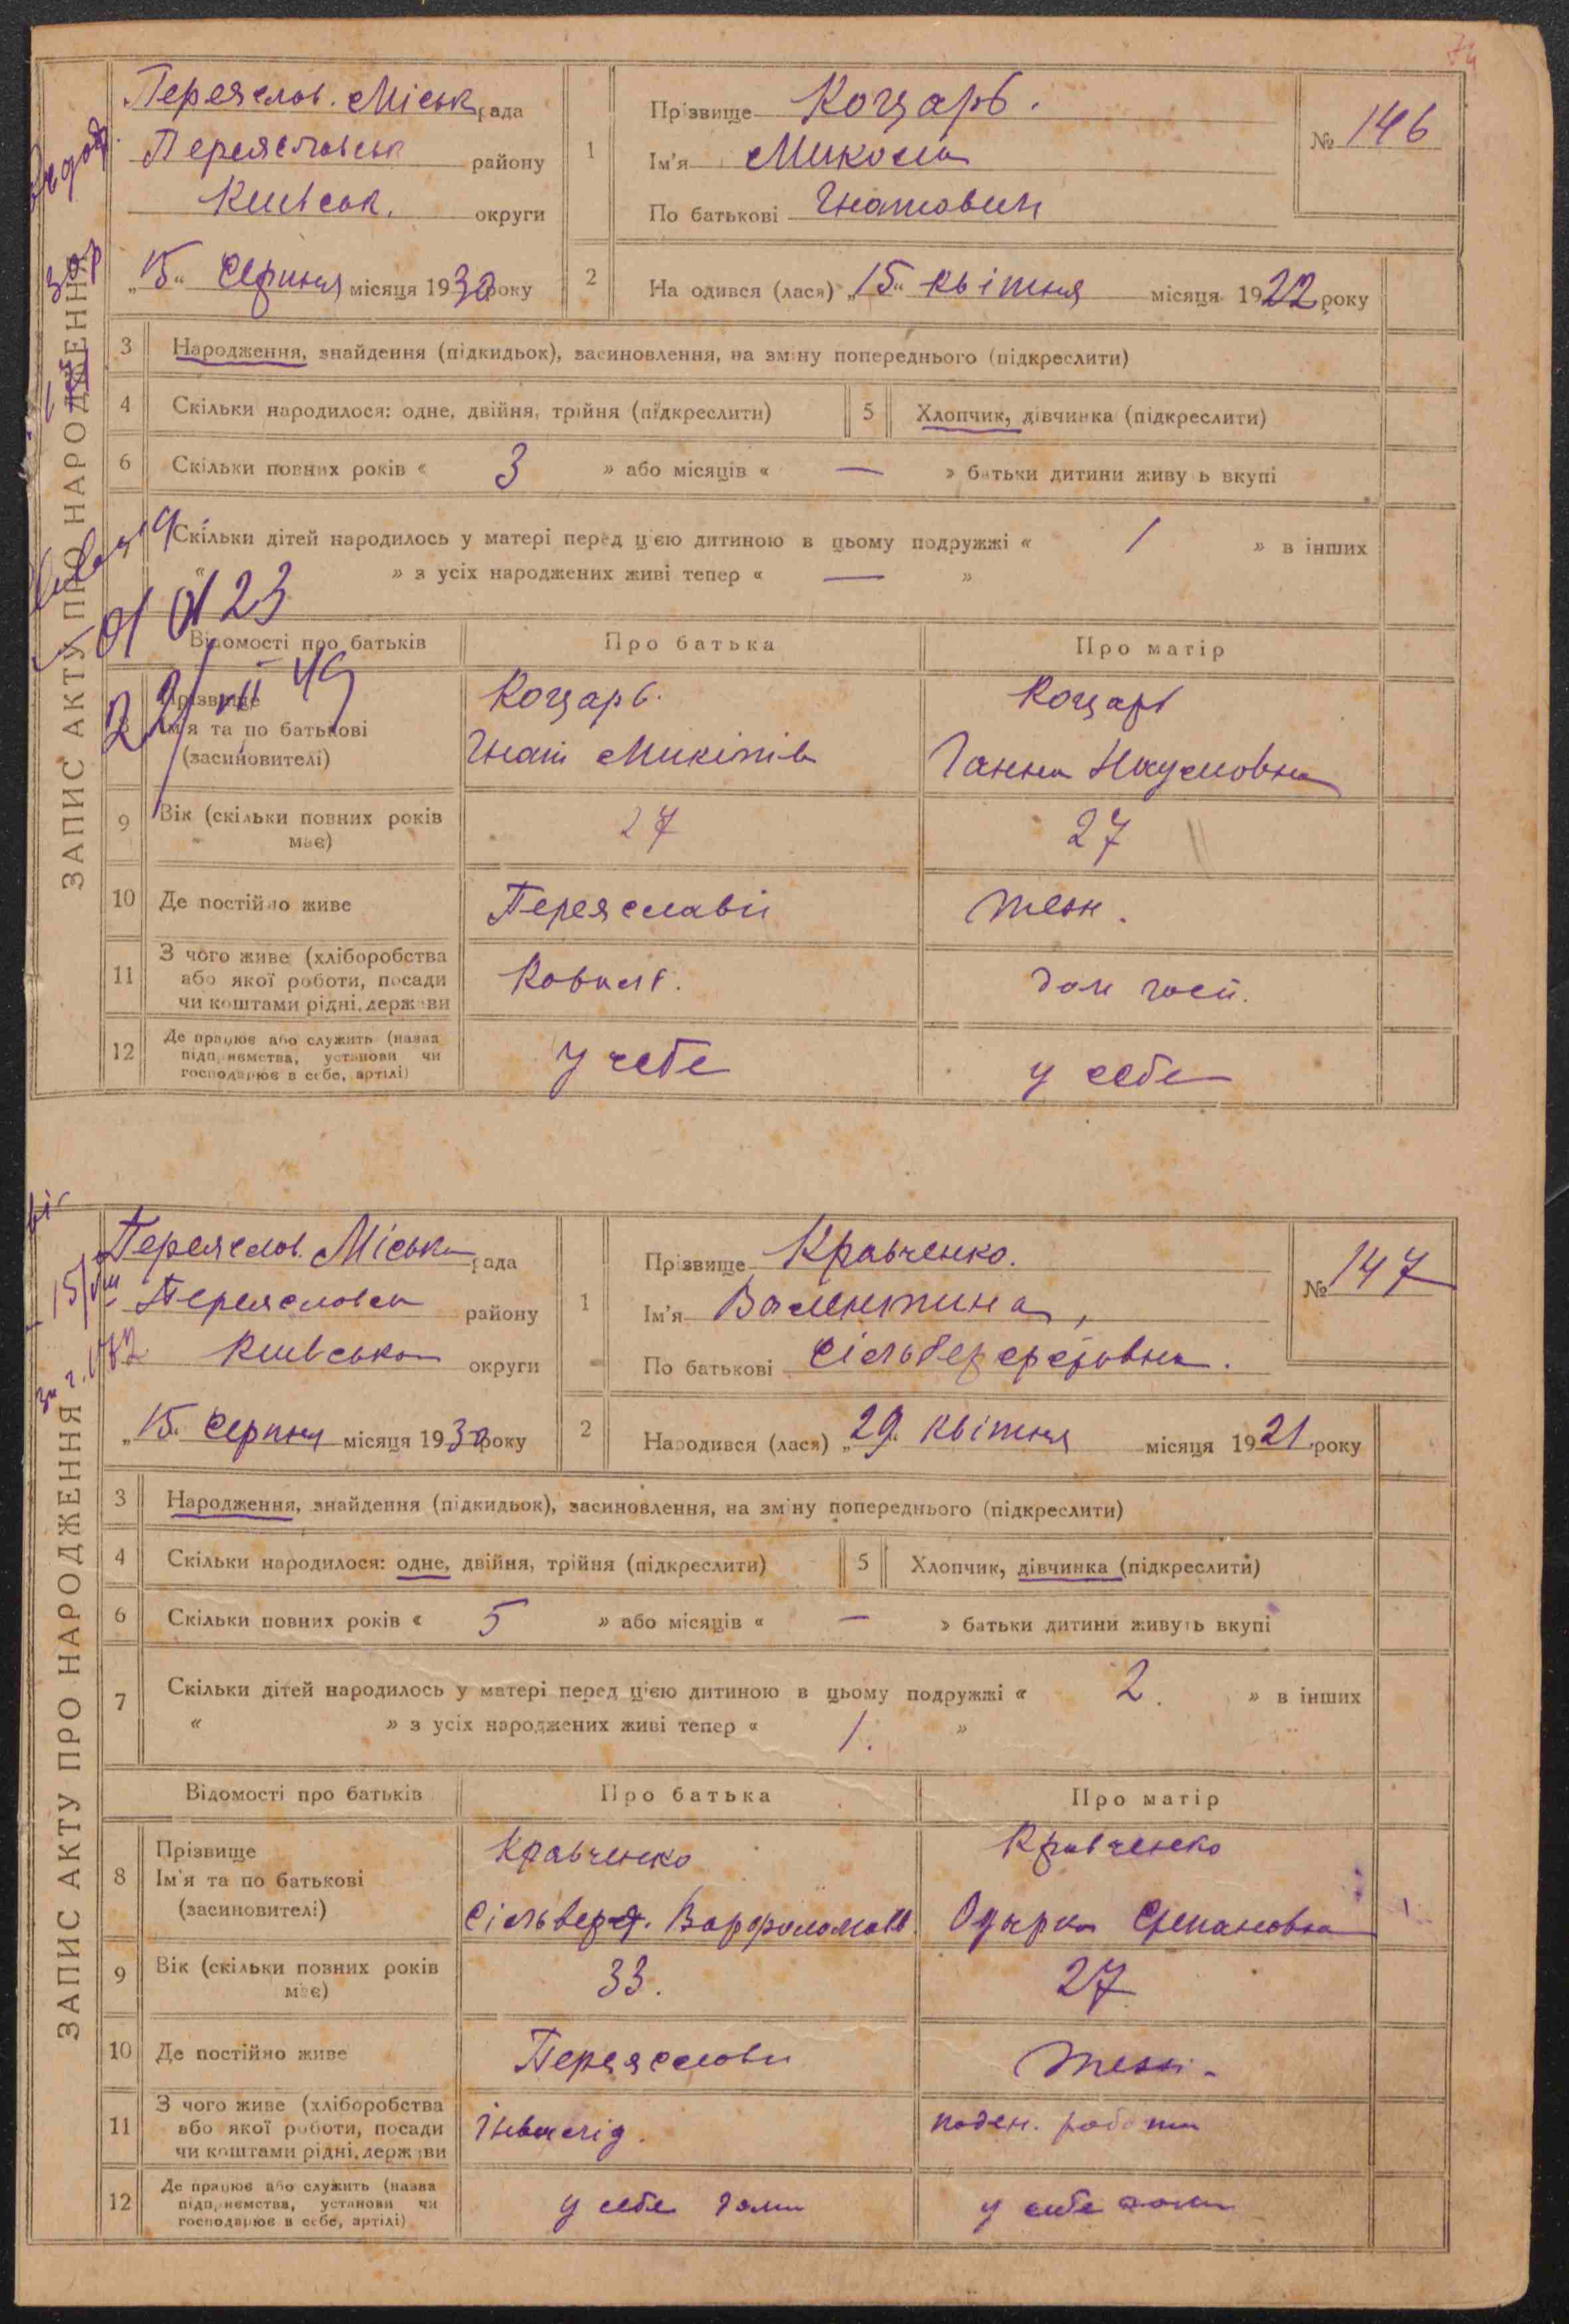 74
ЗАПИС АКТУ ПРО НАРОДЖЕННЯ
Переяслов. Міськ рада
Переяславськ району
Київськ. округи
„15“ Серпня місяця 1930 року
1
Прізвище Коцарь.
Ім'я Микола
По батькові Гнатович
№ 146
2
На одився (лася) „15“ квітня місяця 1922 року
3 Народження, знайдення (підкидьок), засиновлення, на зміну попереднього (підкреслити)
4 Скільки народилося: одне, двійня, трійня (підкреслити) 5 Хлопчик, дівчинка (підкреслити)
6 Скільки повних років « 3 » або місяців « — » батьки дитини живуть вкупі
Скільки дітей народилось у матері перед цією дитиною в цьому подружжі « 1 » в інших
« » з усіх народжених живі тепер « — »
23
Відомості про батьків Про батька Про матір
22/VII 49
8 Прізвище
Ім'я та по батькові
(засиновителі)
Коцарь.
Гнат Микитів
Коцарь
Ганна Наумовна
9 Вік (скільки повних років має) 27 27
10 Де постійно живе Переяславі теж.
11 З чого живе (хліборобства
або якої роботи, посади
чи коштами рідні, держави
Коваль. дом госп.
12 Де працює або служить (назва
підприємства, установи чи
господарює в себе, артілі)
у себе у себе
ЗАПИС АКТУ ПРО НАРОДЖЕННЯ
Переяслов. Міська рада
Переясловськ району
Київська округи
„15“ Серпня місяця 1930 року
1
Прізвище Кравченко.
Ім'я Валентина,
По батькові Сільверстовна.
№ 147
2
Народився (лася) „29“ квітня місяця 1921 року
3 Народження, знайдення (підкидьок), засиновлення, на зміну попереднього (підкреслити)
4 Скільки народилося: одне, двійня, трійня (підкреслити) 5 Хлопчик, дівчинка (підкреслити)
6 Скільки повних років « 5 » або місяців « — » батьки дитини живуть вкупі
7 Скільки дітей народилось у матері перед цією дитиною в цьому подружжі « 2. » в інших
« » з усіх народжених живі тепер « 1. »
Відомості про батьків Про батька Про матір
8 Прізвище
Ім'я та по батькові
(засиновителі)
Кравченко
Сільверст. Варфоломов.
Кравченко
Одарка Степановна
9 Вік (скільки повних років має) 33. 27
10 Де постійно живе Переяслови теж.
11 З чого живе (хліборобства
або якої роботи, посади
чи коштами рідні, держави
Інвалід. поден. робота
12 Де працює або служить (назва
підприємства, установи чи
господарює в себе, артілі)
у себе дома у себе дома